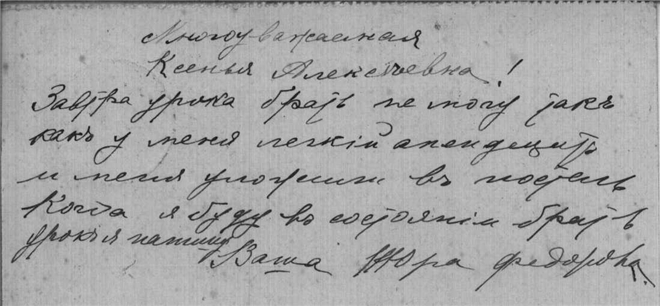 Многоуважаемая
Ксенья Алексѣевна!
Завтра урока брать не могу такъ
какъ у меня легкій апендецитъ
и меня уложили въ постель
Когда я буду въ состояніи брать
урокъ я напишу
Ваша Юра Федорова.